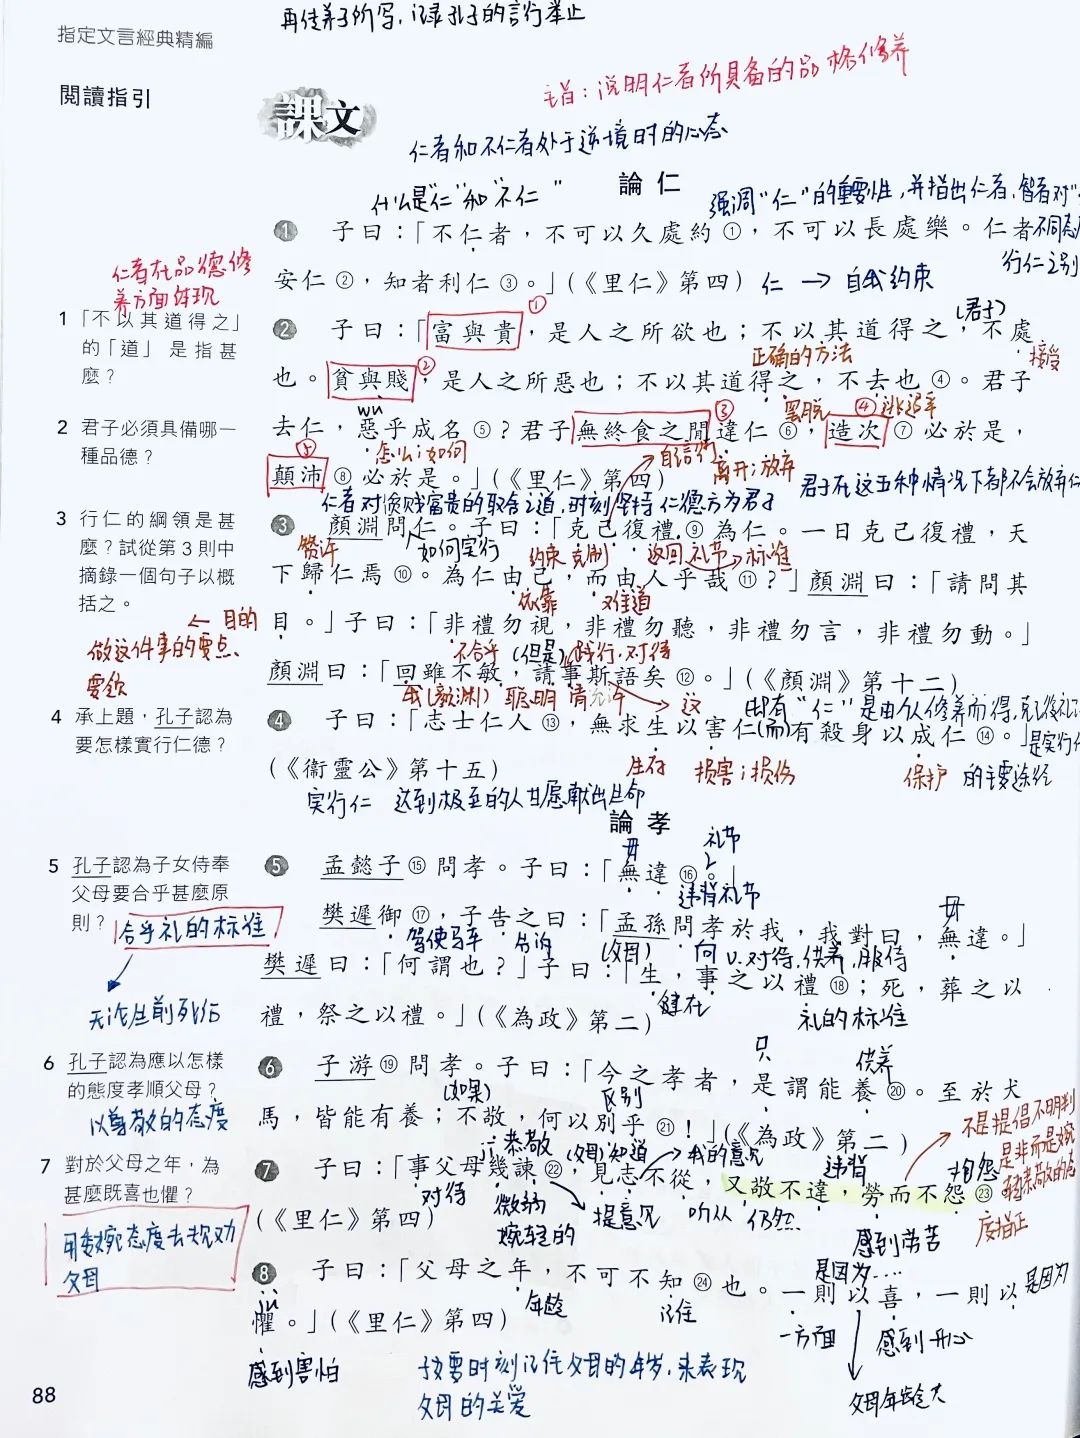 再传弟子所写,记录孔子的言行举止
指定文言經典精編
閱讀指引
課文
主旨:说明仁者所具备的品格修养
仁者和不仁者处于逆境时的心态
論仁
什么是"仁"和"不仁"
强调"仁"的重要性,并指出仁者、智者对"
1 子曰:「不仁者,不可以久處約①,不可以長處樂。仁者
不同态度
行仁之别
安仁②,知者利仁③。」(《里仁》第四)
仁 → 自我约束
仁者在品德修
养方面体现
1 「不以其道得之」
的「道」是指甚
麼?
2 子曰:「富與貴,是人之所欲也;不以其道得之,不處
① (君子)
正确的方法 接受
也。貧與賤,是人之所惡也;不以其道得之,不去也④。君子
② wu ③ 罢脱 ④
2 君子必須具備哪一
種品德?
去仁,惡乎成名⑤?君子無終食之間違仁⑥,造次⑦必於是,
⑤ 怎么;如何 离开;放弃
顛沛⑧必於是。」(《里仁》第四)
君子在这五种情况下都不会放弃仁
仁者对贫贱富贵的取舍之道,时刻坚持仁德方为君子
3 行仁的綱領是甚
麼?試從第3則中
摘錄一個句子以概
括之。
3 顏淵問仁。子曰:「克己復禮⑨為仁。一日克己復禮,天
赞许 如何实行 约束 克制 返回 礼节→标准
下歸仁焉⑩。為仁由己,而由人乎哉⑪?」顏淵曰:「請問其
依靠 难道
← 目的
目。」子曰:「非禮勿視,非禮勿聽,非禮勿言,非禮勿動。」
做这件事的要点、
要领
不合乎 (但是) 践行、对待
顏淵曰:「回雖不敏,請事斯語矣⑫。」(《顏淵》第十二)
我(颜渊) 聪明 请允许 这
4 承上題,孔子認為
要怎樣實行仁德?
4 子曰:「志士仁人⑬,無求生以害仁(而)有殺身以成仁⑭。」
是实行仁
(《衞靈公》第十五)
生存 损害;损伤 保护 的主要途径
实行仁 达到极至的人甘愿献出生命
論孝
毋 礼节
5 孔子認為子女侍奉
父母要合乎甚麼原
則?
合乎礼的标准
无论生前死后
5 孟懿子⑮問孝。子曰:「無違⑯。」
违背礼节 毋
樊遲御⑰,子告之曰:「孟孫問孝於我,我對曰,無違。」
驾使马车 告诉 (父母) 向 v.对待、供养、服侍
樊遲曰:「何謂也?」子曰:「生,事之以禮⑱;死,葬之以
健在 礼的标准
禮,祭之以禮。」(《為政》第二)
6 孔子認為應以怎樣
的態度孝順父母?
以尊敬的态度
只 供养
6 子游⑲問孝。子曰:「今之孝者,是謂能養⑳。至於犬
(如果) 区别
馬,皆能有養;不敬,何以別乎㉑!」(《為政》第二)
恭敬 (父母)知道 我的意见 违背 抱怨
7 對於父母之年,為
甚麼既喜也懼?
用委婉态度去规劝
父母
7 子曰:「事父母幾諫㉒,見志不從,又敬不違,勞而不怨㉓。」
对待 微弱 提意见 听从 仍然 感到劳苦
婉轻的
不是提倡不明判
是非而是婉
度指正
(《里仁》第四)
8 子曰:「父母之年,不可不知㉔也。一則以喜,一則以
年龄 记住 是因为…… 是因为
ju
懼。」(《里仁》第四)
一方面 感到开心
感到害怕
孩要时刻记住父母的年岁,来表现
父母的关爱
父母年龄大
88